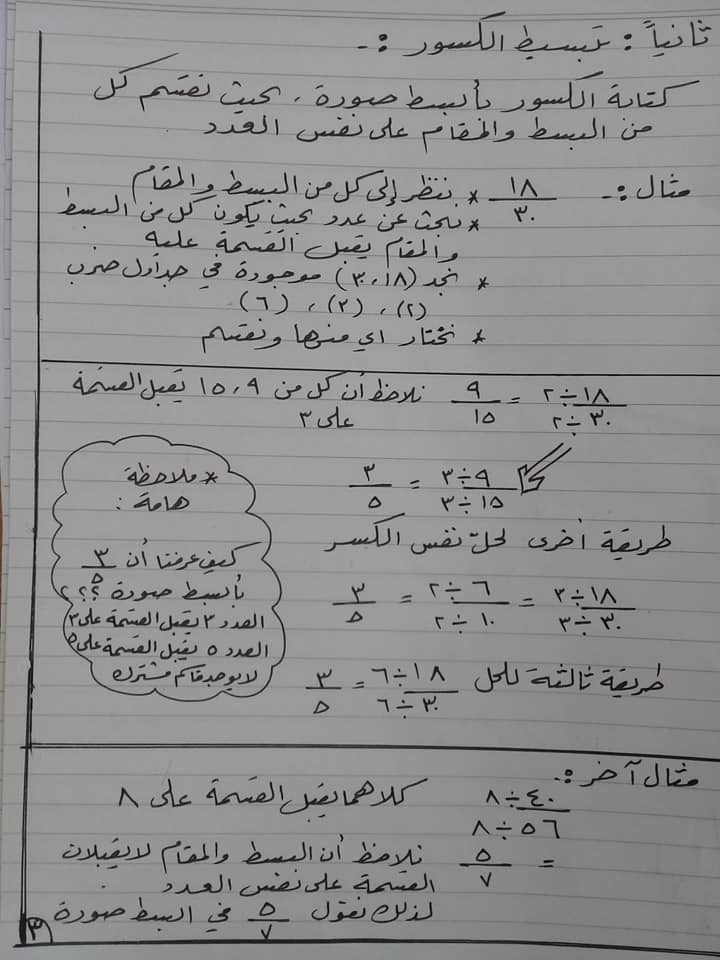 ثانياً : تبسيط الكسور :-
كتابة الكسور بأبسط صورة ، بحيث نقسم كل
من البسط والمقام على نفس العدد
مثال :- ١٨/٣٠ * ننظر إلى كل من البسط والمقام
* نبحث عن عدد بحيث يكون كل من البسط
والمقام يقبل القسمة عليه
* نجد (١٨،٣٠) موجودة في جداول ضرب
(٢) ، (٣) ، (٦)
* نختار اي منها ونقسم
١٨÷٢/٣٠÷٢ = ٩/١٥ نلاحظ أن كل من ٩ ، ١٥ يقبل القسمة
على ٣
٩÷٣/١٥÷٣ = ٣/٥
طريقة أخرى لحلّ نفس الكسر
١٨÷٣/٣٠÷٣ = ٦÷٢/١٠÷٢ = ٣/٥
طريقة ثالثة للحل ١٨÷٦/٣٠÷٦ = ٣/٥
* ملاحظة
هامة :
كيف عرفنا أن ٣/٥
بأبسط صورة ؟؟؟
العدد ٣ يقبل القسمة على ٣
العدد ٥ يقبل القسمة على ٥
لا يوجد قاسم مشترك
مثال آخر :-
٤٠÷٨/٥٦÷٨ كلاهما يقبل القسمة على ٨
= ٥/٧ نلاحظ أن البسط والمقام لا يقبلان
القسمة على نفس العدد
لذلك نقول ٥/٧ في ابسط صورة
٣